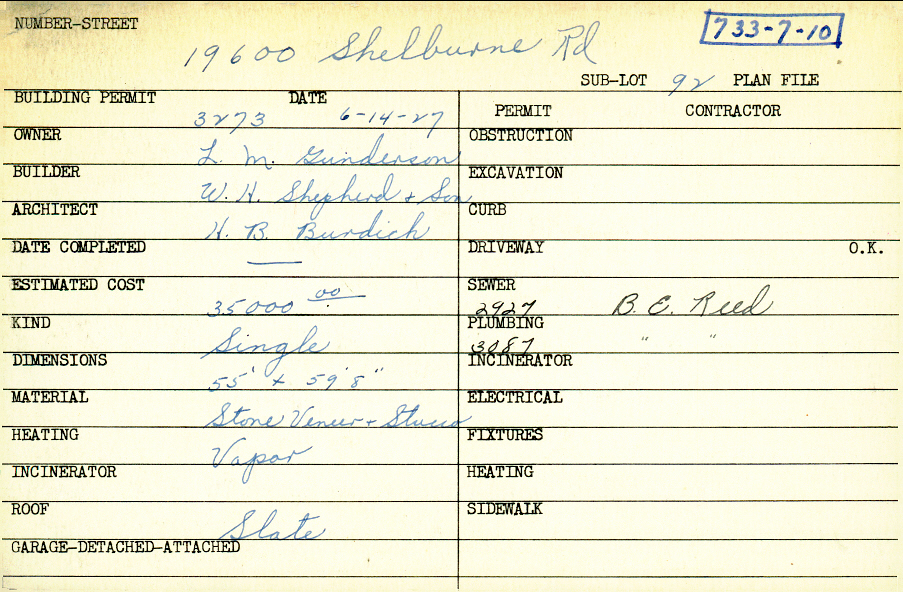 NUMBER-STREET
733-7-10
19600 Shelburne Rd
SUB-LOT 92 PLAN FILE
BUILDING PERMIT DATE
3273 6-14-27
OWNER
L. M. Gunderson
BUILDER
W. H. Shepherd + Son
ARCHITECT
H. B. Burdich
DATE COMPLETED
—
ESTIMATED COST
35000 00
KIND
Single
DIMENSIONS
55' x 59'8"
MATERIAL
Stone Veneer + Stucco
HEATING
Vapor
INCINERATOR
ROOF
Slate
GARAGE-DETACHED-ATTACHED
PERMIT CONTRACTOR
OBSTRUCTION
EXCAVATION
CURB
DRIVEWAY O.K.
SEWER
2927 B. E. Reed
PLUMBING
3087 " "
INCINERATOR
ELECTRICAL
FIXTURES
HEATING
SIDEWALK